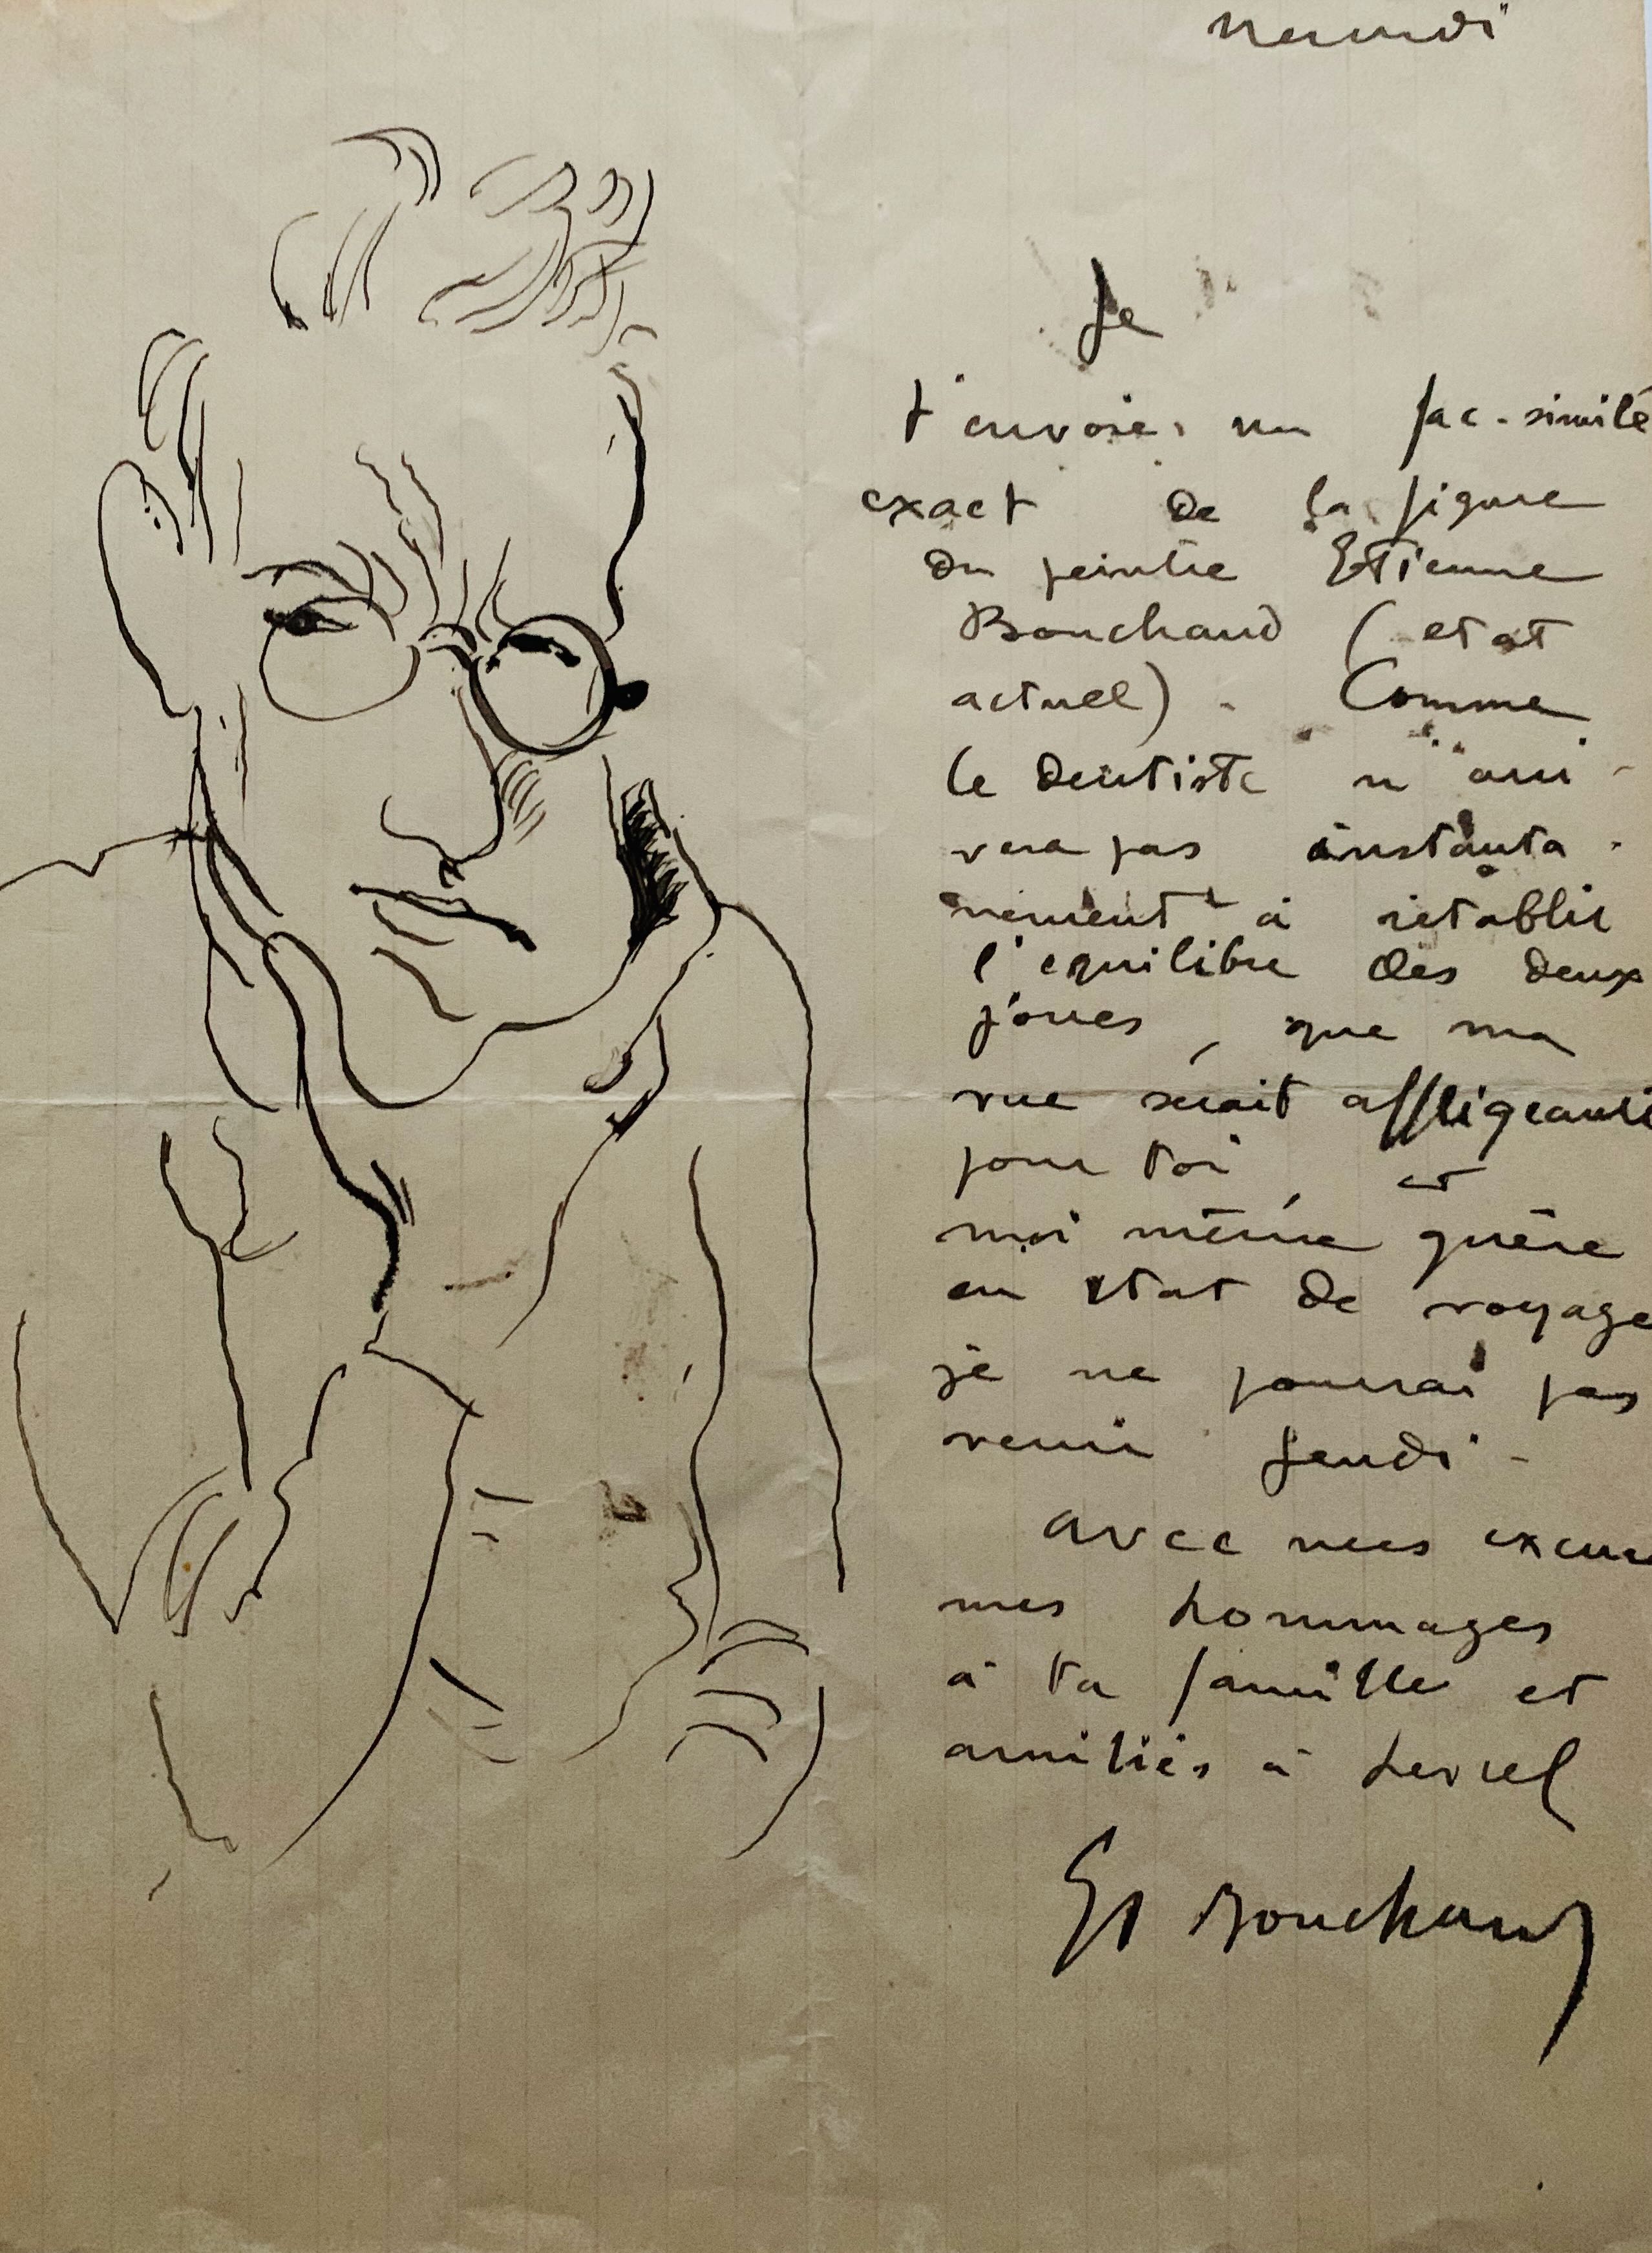 Je
t'envoie un fac-similé
exact de la figure
du peintre Etienne
Bouchaud (etat
actuel). Comme
le dentiste n'arri-
vera pas instanta-
nement à retablir
l'equilibre des deux
joues, que ma
vue serait affligeante
pour toi, et
moi même guère
en etat de voyage
je ne pourrai pas
venir Jeudi -
avec mes excuses
mes hommages
à ta famille et
amitiés à
Et Bouchaud